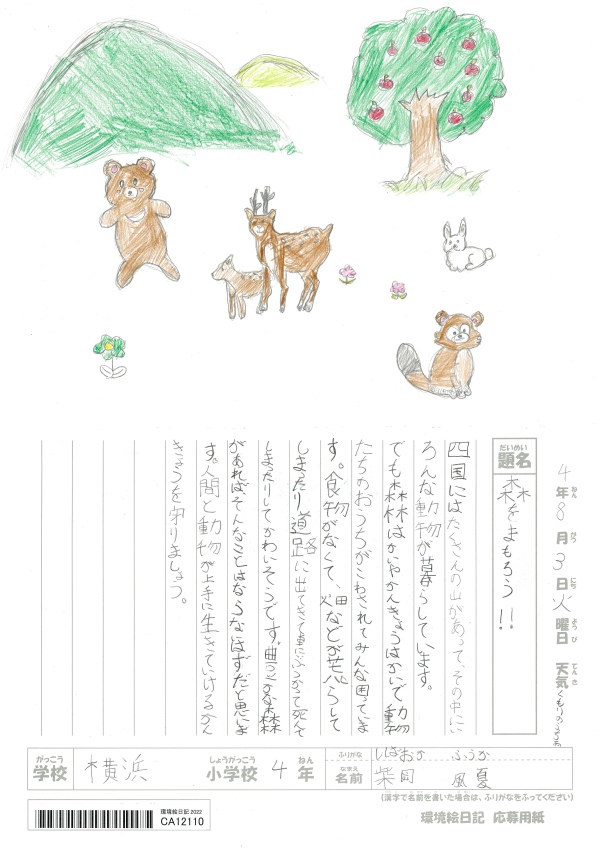 4年ねん8月がつ3日にち火曜日ようび 天気てんき くもりのち
題名だいめい
森をまもろう!!
四国にはたくさんの山があって、その中にい
ろんな動物が暮らしています。
でも森林はかいやかんきょうはかいで動物
たちのおうちがこわされてみんな困っていま
す。食物がなくて、畑などが荒らして
しまったり、道路に出てきて車にぶつかって死んで
しまったりしてかわいそうです。豊かな森
があればそんなことはならないはずだと思いま
す。人間と動物が上手に生きていけるかん
きょうを守りましょう。
学校がっこう 横浜 小学校しょうがっこう 4年ねん
ふりがな しばおか ふうか
名前なまえ 柴岡 風夏
(漢字で名前を書いた場合は、ふりがなをふってください)
環境絵日記 2022
CA12110
環境絵日記 応募用紙